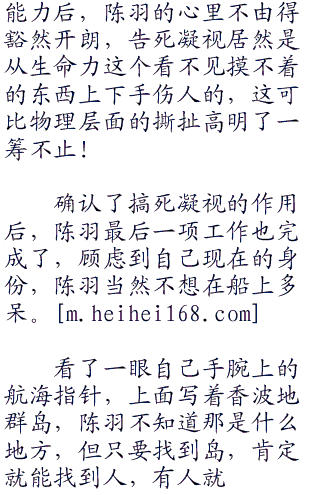 能力后，陈羽的心里不由得
豁然开朗，告死凝视居然是
从生命力这个看不见摸不着
的东西上下手伤人的，这可
比物理层面的撕扯高明了一
筹不止！
确认了搞死凝视的作用
后，陈羽最后一项工作也完
成了，顾虑到自己现在的身
份，陈羽当然不想在船上多
呆。[m.heihei168.com]
看了一眼自己手腕上的
航海指针，上面写着香波地
群岛，陈羽不知道那是什么
地方，但只要找到岛，肯定
就能找到人，有人就